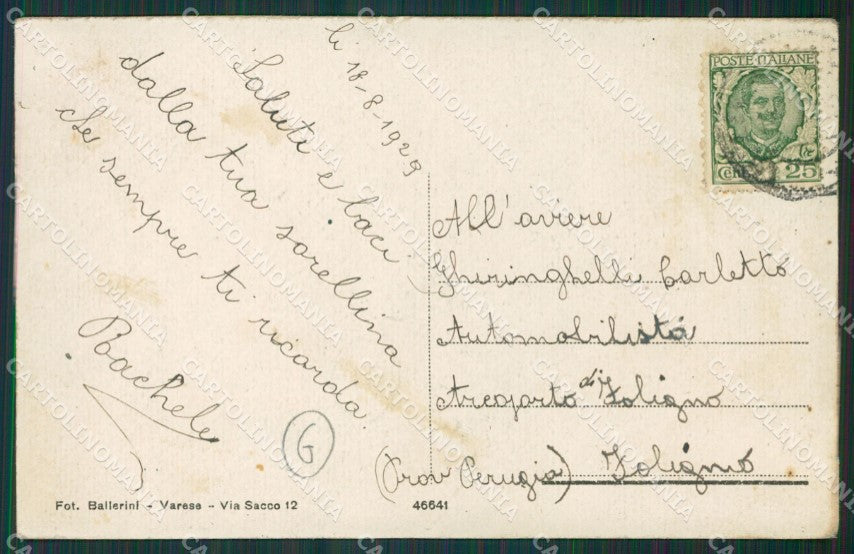 li 18-8-1929
Saluti e baci
dalla tua sorellina
che sempre ti ricorda
Rachele
6
POSTE ITALIANE
CENT. 25
All'aviere
Ghiringhelli Carletto
Automobilista
Areoporto di Foligno
(Prov Perugia) Foligno
Fot. Ballerini - Varese - Via Sacco 12
46641
CARTOLINOMANIA